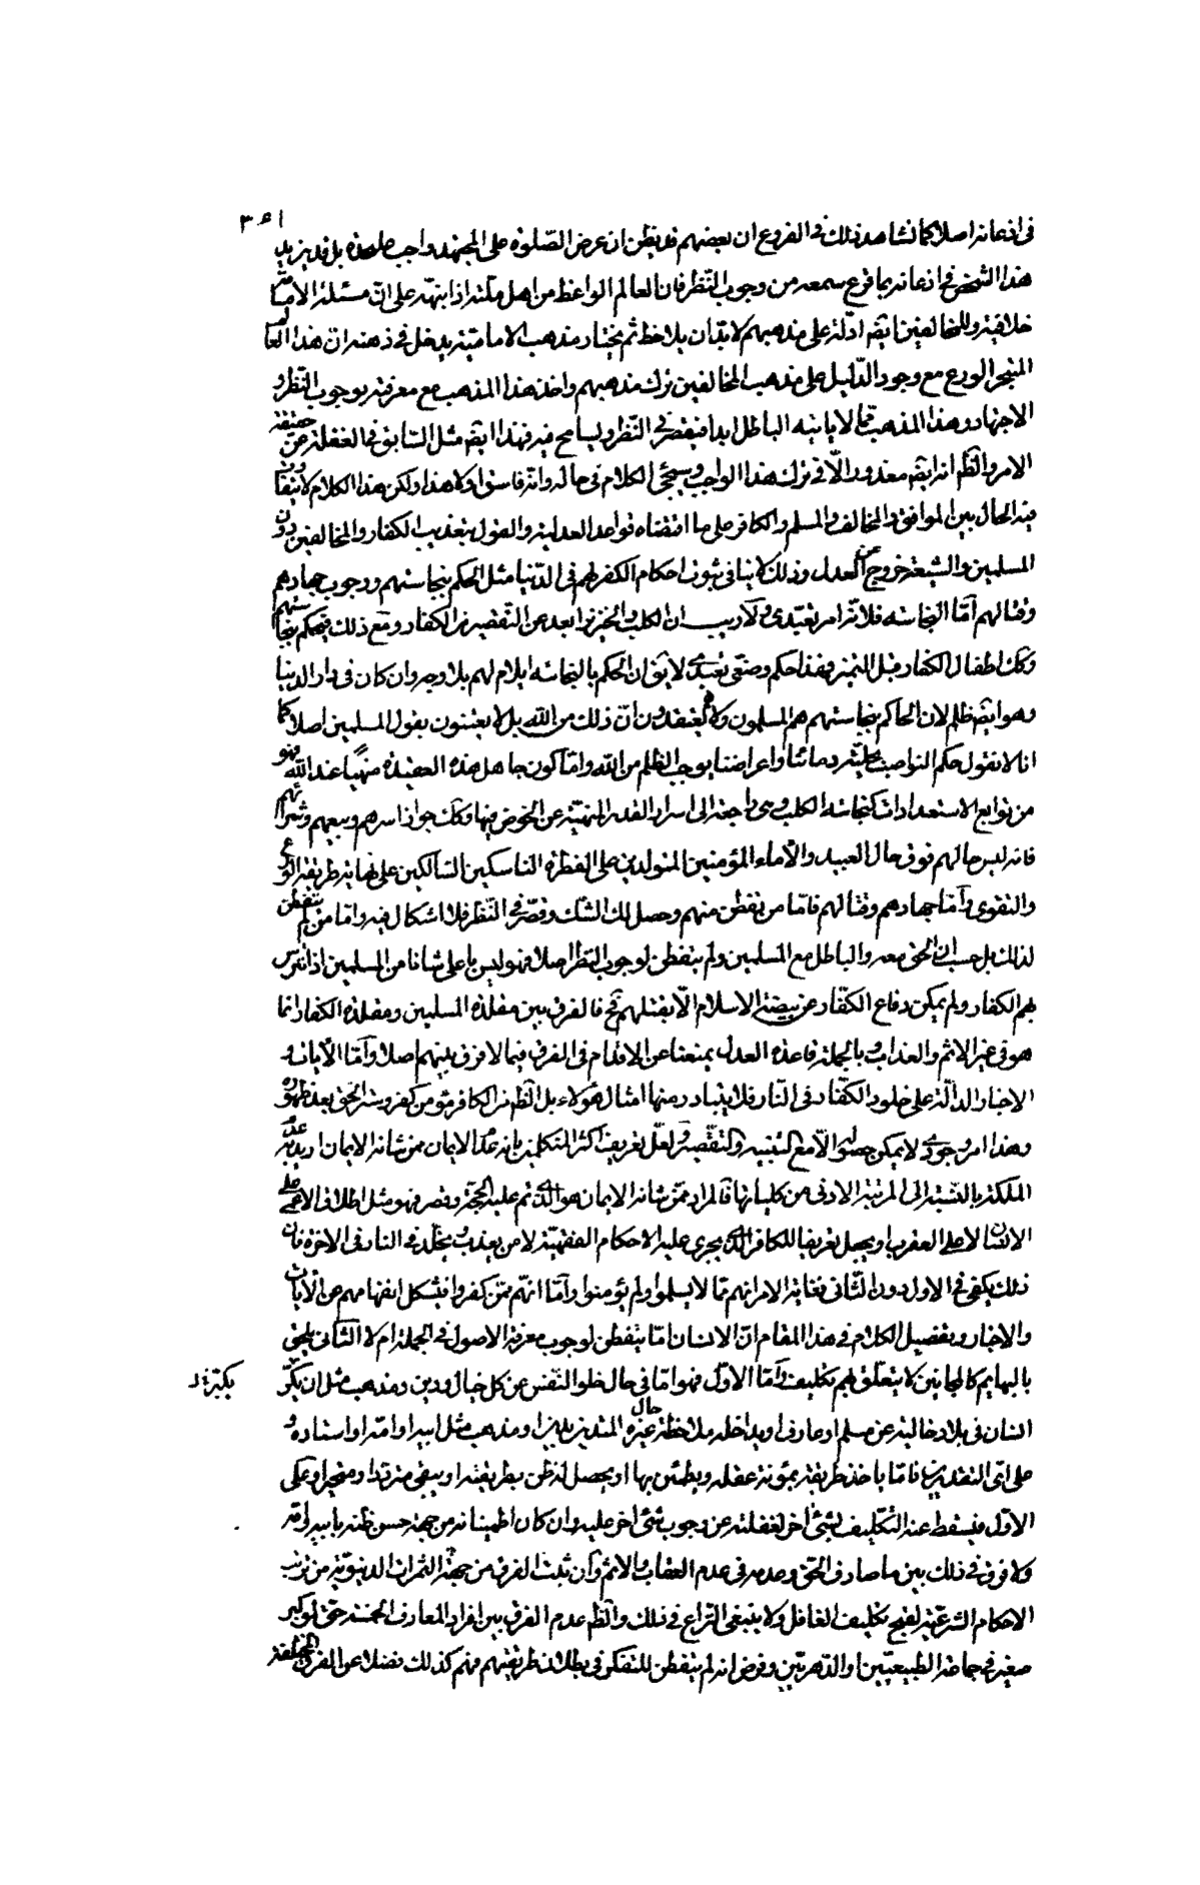 ٣٤١
في اذعانه اصلا كما نشاهد ذلك في الفروع ان بعضهم قد يظن ان عرض الصلوة على المجتهد واجب عليحدة بل قد يزيد
هذا الشخص في اذعانه بما قرع سمعه من وجوب النظر فان العالم الواعظ من اهل ملته اذا ينبّه على انّ مسئلة الامامة
خلافية وللمخالفين ايضا ادلّة على مذهبهم لابد ان يلاحظ ثم يختار مذهب الامامية يدخل في ذهنه ان هذا العالم
المتبحر الورع مع وجود الدليل على مذهب المخالفين ترك مذهبهم واخذ هذا المذهب مع معرفته بوجوب النظر و
الاجتهاد وهذا المذهب مما لا يأتيه الباطل ابدا فيقصر في النظر ويسامح فيه فهذا ايضا مثل السابق في الغفلة عن حقيقة
الامر والظ انه ايضا معذور الّا في ترك هذا الواجب وسيجئ الكلام في حاله وانه فاسق او لا هذا ولكن هذا الكلام لا يتفاوت
فيه الحال بين الموافق والمخالف والمسلم والكافر على ما اقتضاه قواعد العدلية والقول بتعذيب الكفار والمخالفين دون
المسلمين والشيعة خروج عن العدل وذلك لا ينافي ثبوت احكام الكفر لهم في الدنيا مثل الحكم بنجاستهم ووجوب جهادهم
وقتالهم امّا النجاسة فلانّه امر تعبّدي ولا ريب ان الكلب والخنزير ابعد عن التقصير من الكفار ومع ذلك فيحكم بنجاستهم
وكك اطفال الكفار قبل التميز فهذا حكم وضعي تعبدي لا يق ان الحكم بالنجاسة ايلام لهم بلا وجه وان كان في دار الدنيا
وهو ايضا ظلم لان الحاكم بنجاستهم هم المسلمون ولا هم يعتقدون انّ ذلك من الله بل لا يعتنون بقول المسلمين اصلا كما
انا لا نقول حكم النواصب دمائنا واعراضنا يوجب الظلم من الله واما كون جاهل هذه العقيدة منهيا عند الله فهو
من توابع الاستعدادات كنجاسة الكلب وهي راجعة الى اسرار القدر المنهية عن الخوض فيها وكك جواز اسرهم وبيعهم وشرائهم
فانه ليس حالهم فوق حال العبيد والاماء المؤمنين المتولدين على الفطرة الناسكين السالكين على نهاية طريقة الورع
والتقوى وامّا جهادهم وقتالهم فامّا من تفطن منهم وحصل له الشك وقصّر في النظر فلا اشكال فيه وامّا من لم يتفطن
لذلك بل حسب ان الحق معه والباطل مع المسلمين ولم يتفطن لوجوب النظر اصلا فهو ليس باعلى شانا من المسلمين اذا تترس
بهم الكفار ولم يمكن دفاع الكفّار عن بيضة الاسلام الّا بقتلهم فح فالفرق بين مقلدة المسلمين ومقلدة الكفار انما
هو في غير الاثم والعذاب وبالجملة قاعدة العدل يمنعنا عن الاقدام في الفرق فيما لا فرق بينهم اصلا وامّا الآيات و
الاخبار الدالّة على خلود الكفّار في النار فلا يتبادر منها امثال هؤلاء بل الظ من الكافر هو من كفر وستر الحق بعد ظهوره
وهذا امر وجودي لا يمكن حصوله الّا مع التنبيه والتقصير ولعلّ تعريف اكثر المتكلمين بانه عدم الايمان ممن شانه الايمان اريد به عدم
الملكة بالنسبة الى المرتبة الادنى من كلياتها فالمراد ممن شانه الايمان هو الذي تم عليه الحجة وقصر فهو مثل اطلاق الاعمى على
الانسان لا على العقرب او يجعل تعريفا للكافر الذي يجري عليه الاحكام الفقهية لا من يعذب ويخلد في النار في الاخرة فان
ذلك يكفي في الاول دون الثاني فغاية الامر انهم مما لا يسلموا ولم يؤمنوا وامّا انهم ممن كفروا فيشكل انفهامهم من الآيات
والاخبار وتفصيل الكلام في هذا المقام انّ الانسان امّا يتفطن لوجوب معرفة الاصول في الجملة ام لا الثاني يلحق
بالبهايم كالمجانين لا يتعلق بهم تكليف وامّا الاوّل فهو امّا في حال خلو النفس عن كل خيال ودين ومذهب مثل ان يكبر
انسان في بلاد خالية عن مسلم او عارف او يداخله ملاحظة حال غيره المتدين بدين او مذهب مثل ابيه او امّه او استاده و
على اي التقديرين فامّا ياخذ طريقة بمؤنة عقله ويطمئن بها او يحصل له ظن بطريقته او يبقى مترددا ومتحيرا وعلى
الاوّل فيسقط عنه التكليف بشئ اخر لغفلته عن وجوب شئ اخر عليه وان كان اطمينانه من جهة حسن ظنه بابيه وامّه
ولا فرق في ذلك بين ما صادف الحق وعدمه في عدم العقاب والاثم وان ثبت الفرق من جهة الثمرات الدنيوية من ترتب
الاحكام الشرعية لقبح تكليف الغافل ولا ينبغي النزاع في ذلك والظ عدم الفرق بين افراد المعارف الخمسة حتى لو كبر
صغير في جماعة الطبيعيّين او الدهريّين وفرض انه لم يتفطن للتفكر في بطلان طريقتهم فهم كذلك فضلا عن الفرق المختلفة